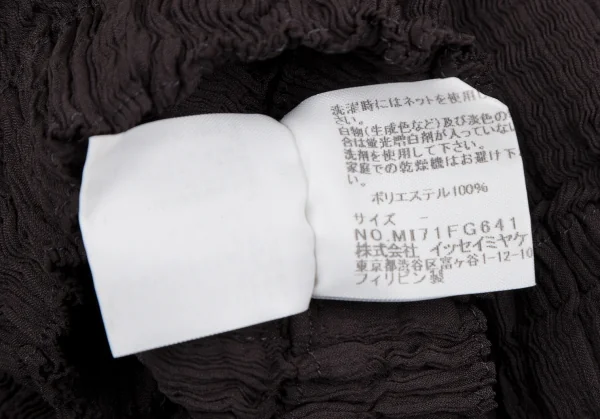 洗濯時にはネットを使用し
さい。
白物(生成色など)及び淡色の
合は蛍光増白剤が入っていない
洗剤を使用して下さい。
家庭での乾燥機はお避け下
い。
ポリエステル100%
サイズ -
NO.MI71FG641
株式会社 イッセイミヤケ
東京都渋谷区富ヶ谷1-12-10
フィリピン製